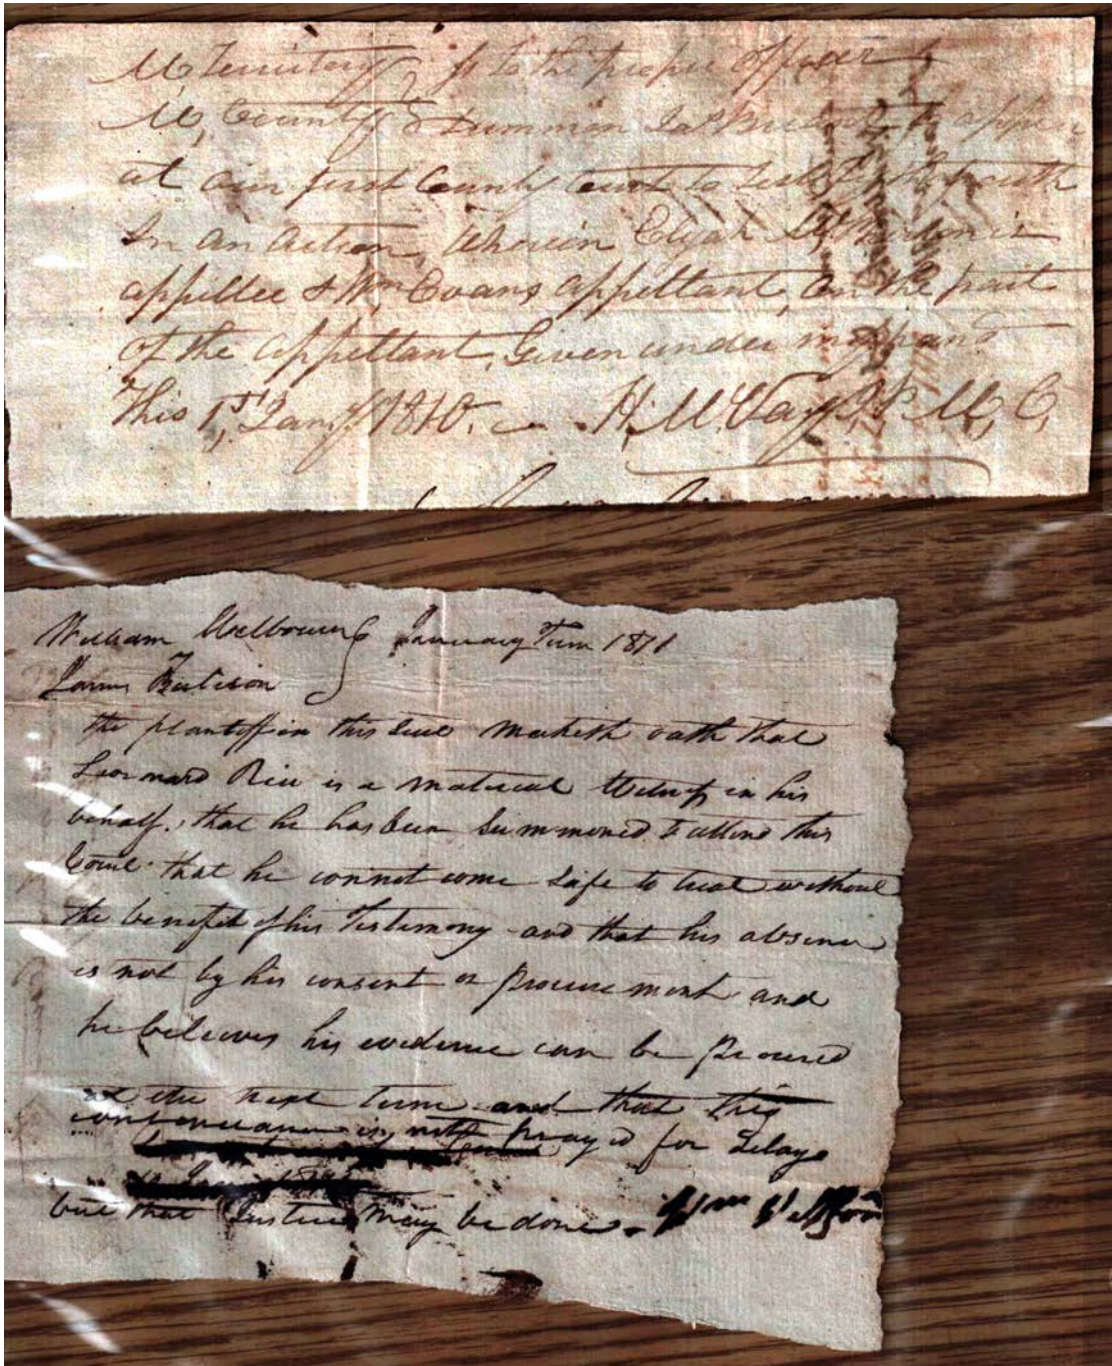 M, Territory } ss to the proper officer
M, County } Summon Jas to appear
at our first County Court to testify the truth
In an action, wherein Elijah is
appellee & Wm Evans appellant, on the part
of the appellant, Given under my hand
This 1st, Jany 1810. H. McVay J.P. M, C,
William Welbourn } January Term 1811
James
the plantiff in this suit maketh oath that
Leornard Rice is a material Witness in his
behalf, that he has been summoned to attend this
Court that he connot come safe to trial without
the benefit of his Testimony and that his absence
is not by his consent or procurement and
he believes his evidence can be procured
at the next term and that this
continuance is not prayed for Delay
but that Justice may be done. Wm